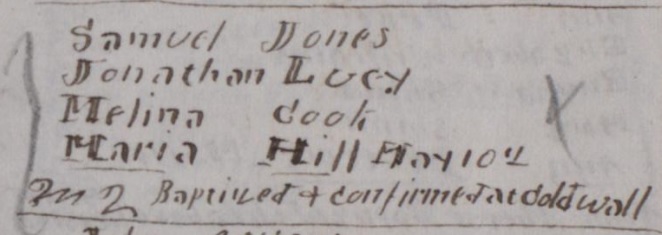 Samuel Jones
Jonathan Lucy
Melina Cook
Maria Hill May 10th
2m 2 Baptized & confirmed at Coldwall